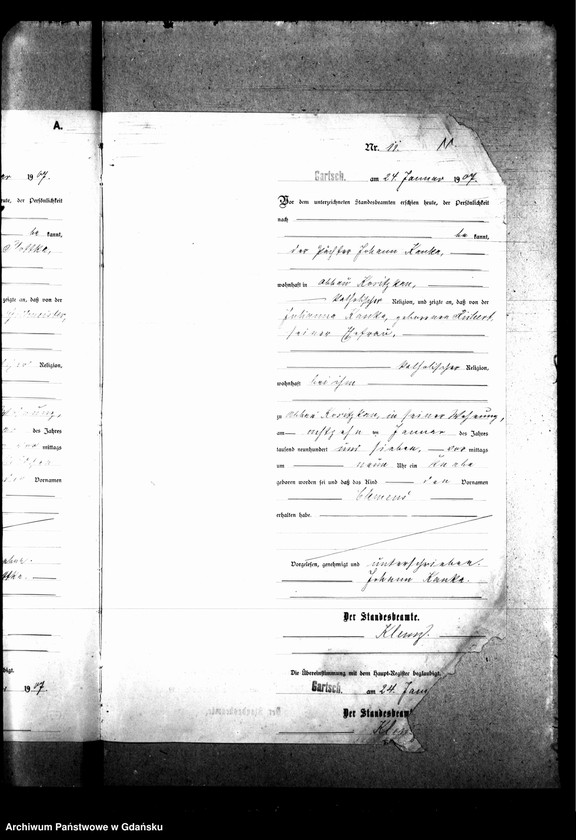 A.
1907.
Persönlichkeit
be kannt,
zeigte an, daß von der
Religion,
des Jahres
mittags
Vornamen
1907.
Nr. 11. 11
Gartsch. am 24. Januar 1907.
Vor dem unterzeichneten Standesbeamten erschien heute, der Persönlichkeit
nach
be kannt,
der Pächter Johann Kanka,
wohnhaft in Abbau
katholischer Religion, und zeigte an, daß von der
Julianna Kanka, geborenen
seiner Ehefrau,
katholischer Religion,
wohnhaft bei ihm
zu Abbau in seiner Wohnung,
am achtzehn ten Januar des Jahres
tausend neunhundert und sieben, vor mittags
um neun Uhr ein Knabe
geboren worden sei und daß das Kind den Vornamen
Clemens
erhalten habe.
Vorgelesen, genehmigt und unterschrieben.
Johann Kanka.
Der Standesbeamte.
Die Übereinstimmung mit dem Haupt-Register beglaubigt.
Gartsch. am 24. Janu
Der Standesbeam
Archiwum Państwowe w Gdańsku